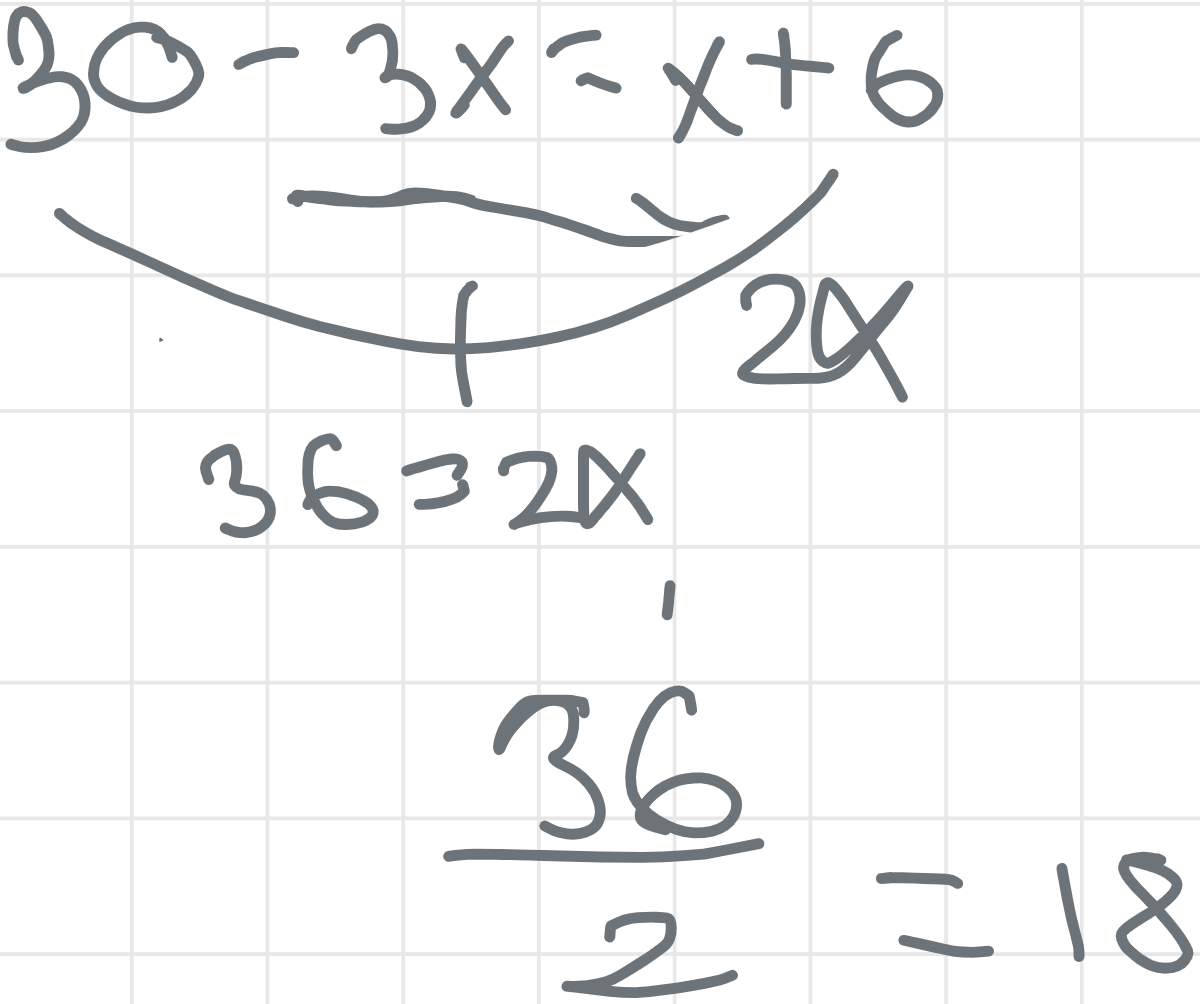 30 - 3x = x + 6
2x
36 = 2x
36
2
= 18